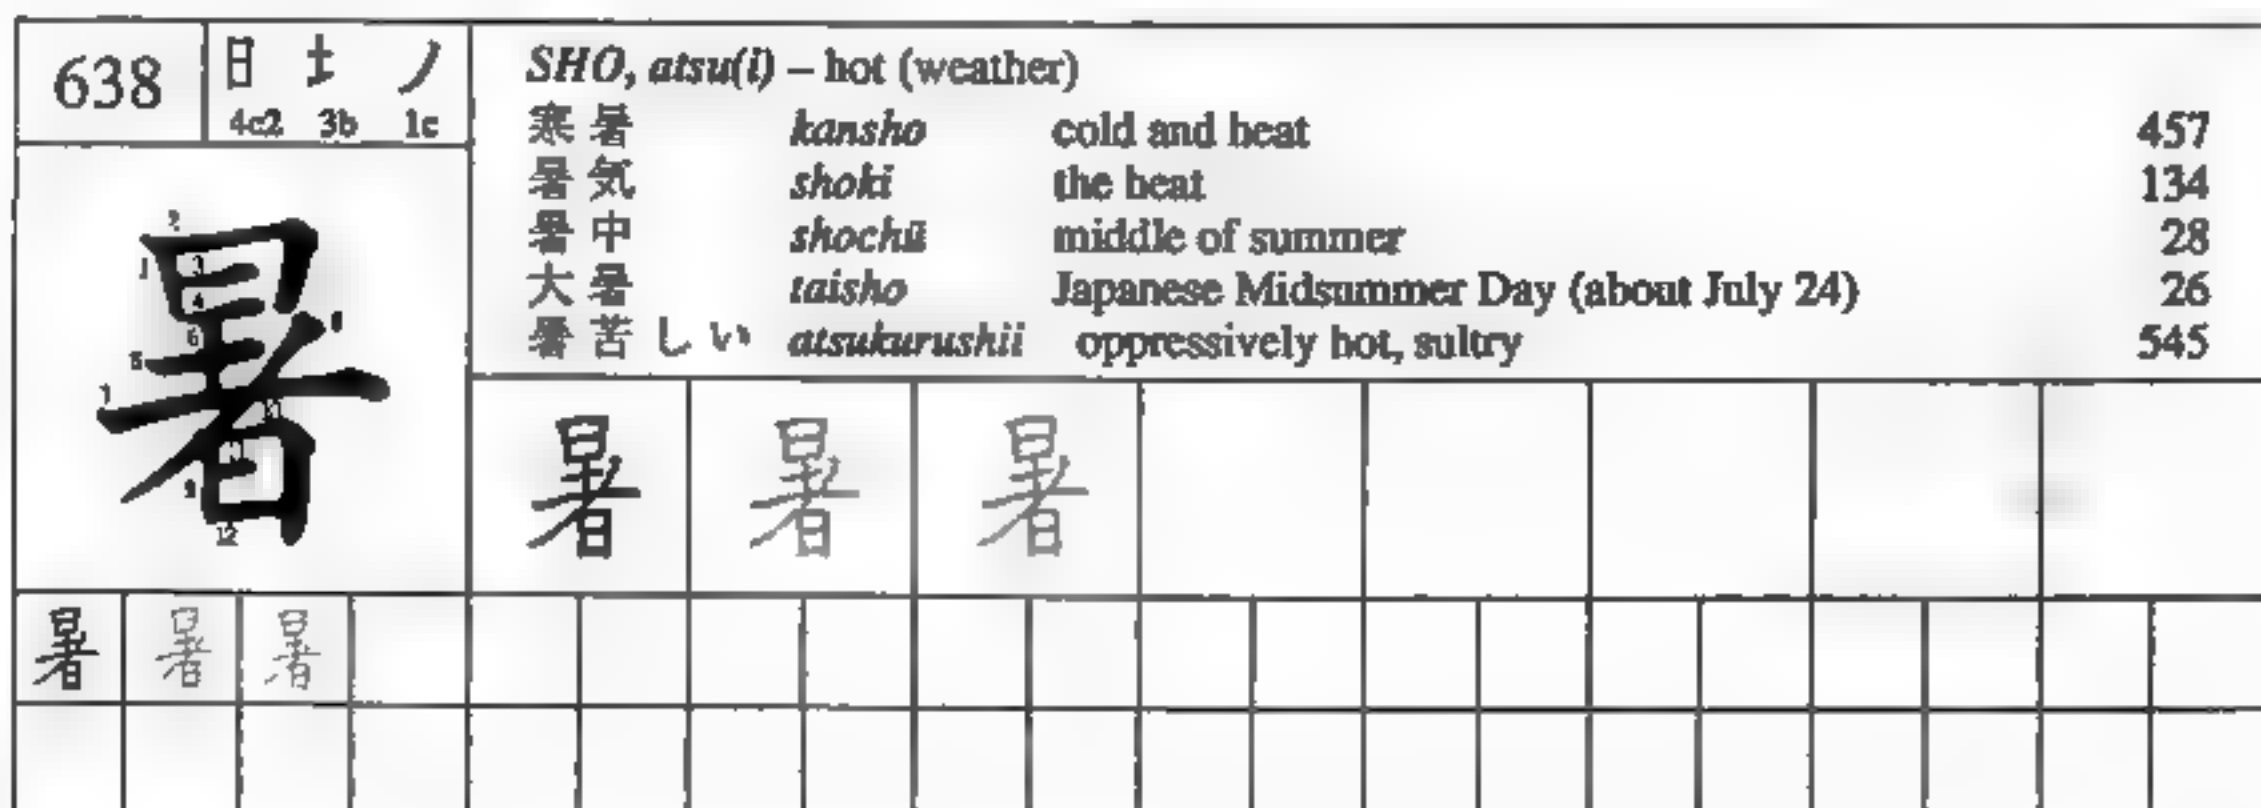 638
日 扌 ノ
4c2 3b 1c
SHO, atsu(i) – hot (weather)
寒暑 kansho cold and heat 457
暑気 shoki the heat 134
暑中 shochū middle of summer 28
大暑 taisho Japanese Midsummer Day (about July 24) 26
暑苦しい atsukurushii oppressively hot, sultry 545
暑
1 2 3 4 5 6 7 8 9 10 11 12
暑 暑 暑
暑 暑 暑